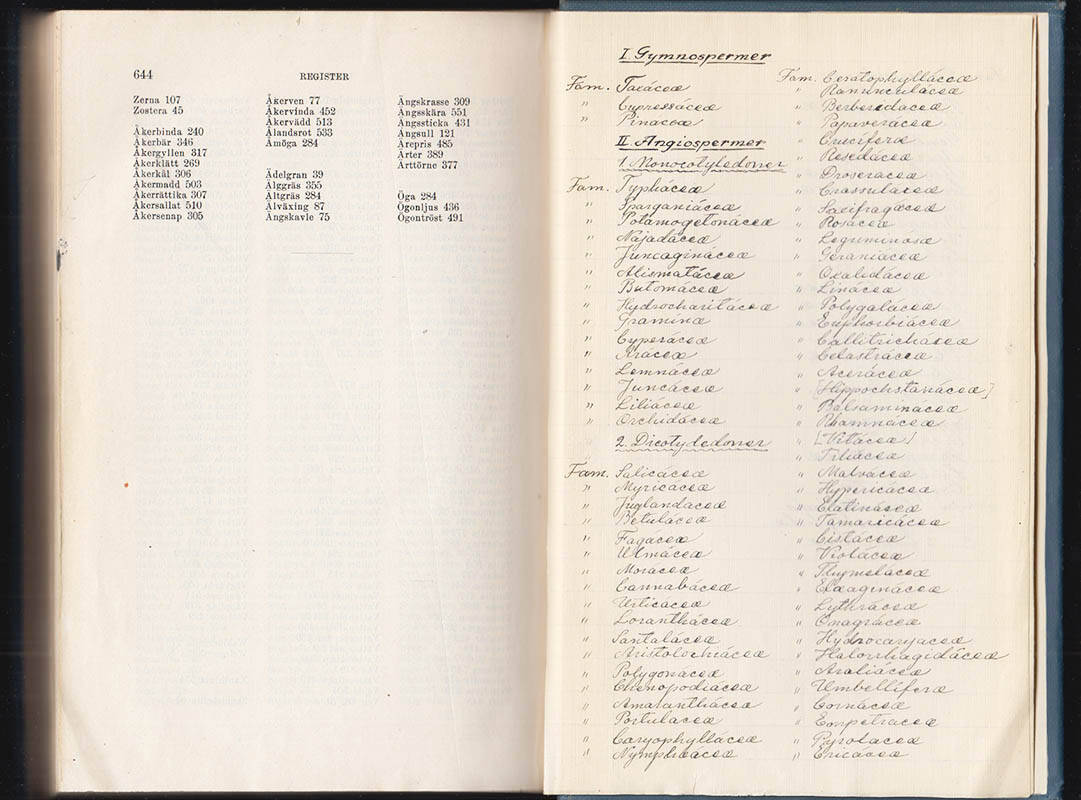 644
REGISTER
Zerna 107
Zostera 45
Åkerbinda 240
Åkerbär 346
Åkergyllen 317
Åkerklätt 269
Åkerkål 306
Åkermadd 503
Åkerrättika 307
Åkersallat 510
Åkersenap 305
Åkerven 77
Åkervinda 452
Åkervädd 513
Ålandsrot 533
Åmöga 284
Ädelgran 39
Älggräs 355
Ältgräs 284
Älväxing 87
Ängskavle 75
Ängskrasse 309
Ängsskära 551
Ängssticka 431
Ängsull 121
Ärepris 485
Ärter 389
Ärttörne 377
Öga 284
Ögonljus 436
Ögontröst 491
I. Gymnospermer
Fam. Taxáceæ
" Cypressáceæ
" Pináceæ
II. Angiospermer
1. Monocotyledoner
Fam. Typháceæ
" Sparganiáceæ
" Potamogetonáceæ
" Najadáceæ
" Juncagináceæ
" Alismatáceæ
" Butomáceæ
" Hydrocharitáceæ
" Gramínæ
" Cyperaceæ
" Aráceæ
" Lemnáceæ
" Juncáceæ
" Liliáceæ
" Orchidáceæ
2. Dicotyledoner
Fam. Salicáceæ
" Myricáceæ
" Juglandaceæ
" Betuláceæ
" Fagaceæ
" Ulmáceæ
" Moraceæ
" Cannabáceæ
" Urticáceæ
" Lorantháceæ
" Santaláceæ
" Aristolochiáceæ
" Polygonáceæ
" Chenopodiáceæ
" Amarantháceæ
" Portulaceæ
" Caryophylláceæ
" Nymphæáceæ
Fam. Ceratophylláceæ
" Ranunculáceæ
" Berberidaceæ
" Papaveráceæ
" Crucíferæ
" Resedáceæ
" Droseraceæ
" Crassuláceæ
" Saxifragáceæ
" Rosáceæ
" Leguminosæ
" Geraniáceæ
" Oxalidáceæ
" Lináceæ
" Polygaláceæ
" Euphorbiáceæ
" Callitricháceæ
" Celastráceæ
" Aceráceæ
" [Hippochstanáceæ]
" Balsamináceæ
" Rhamnáceæ
" [Vitáceæ]
" Tiliáceæ
" Malváceæ
" Hypericáceæ
" Elatináceæ
" Tamaricáceæ
" Cistáceæ
" Violáceæ
" Thymeláceæ
" Elæagináceæ
" Lythráceæ
" Onagráceæ
" Hydrocaryaceæ
" Halorrhagidáceæ
" Araliáceæ
" Umbellíferæ
" Cornáceæ
" Empetraceæ
" Pyrolaceæ
" Ericáceæ